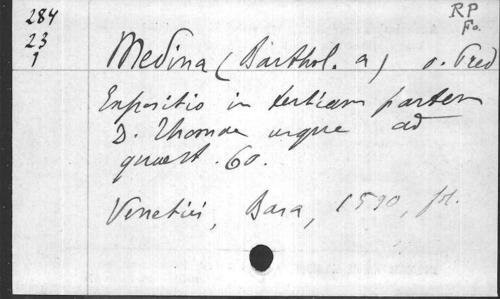 284
23
1
RP
Fo.
Medina (Barthol. a) o. Pred
Expositio in tertiam partem
D. Thomae usque ad
quaest. 60.
Venetiis, Basa, 1590, fol.